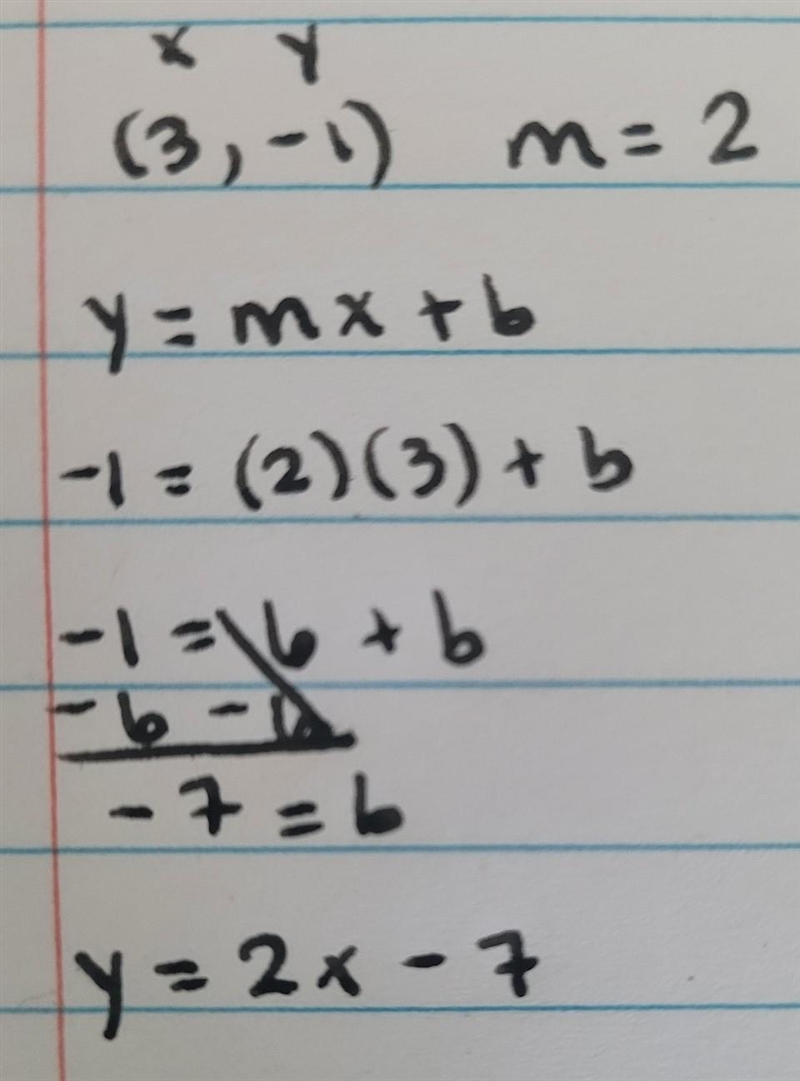 x y
(3, -1) m = 2
y = mx + b
-1 = (2)(3) + b
-1 = 6 + b
-6 -6
-7 = b
y = 2x - 7